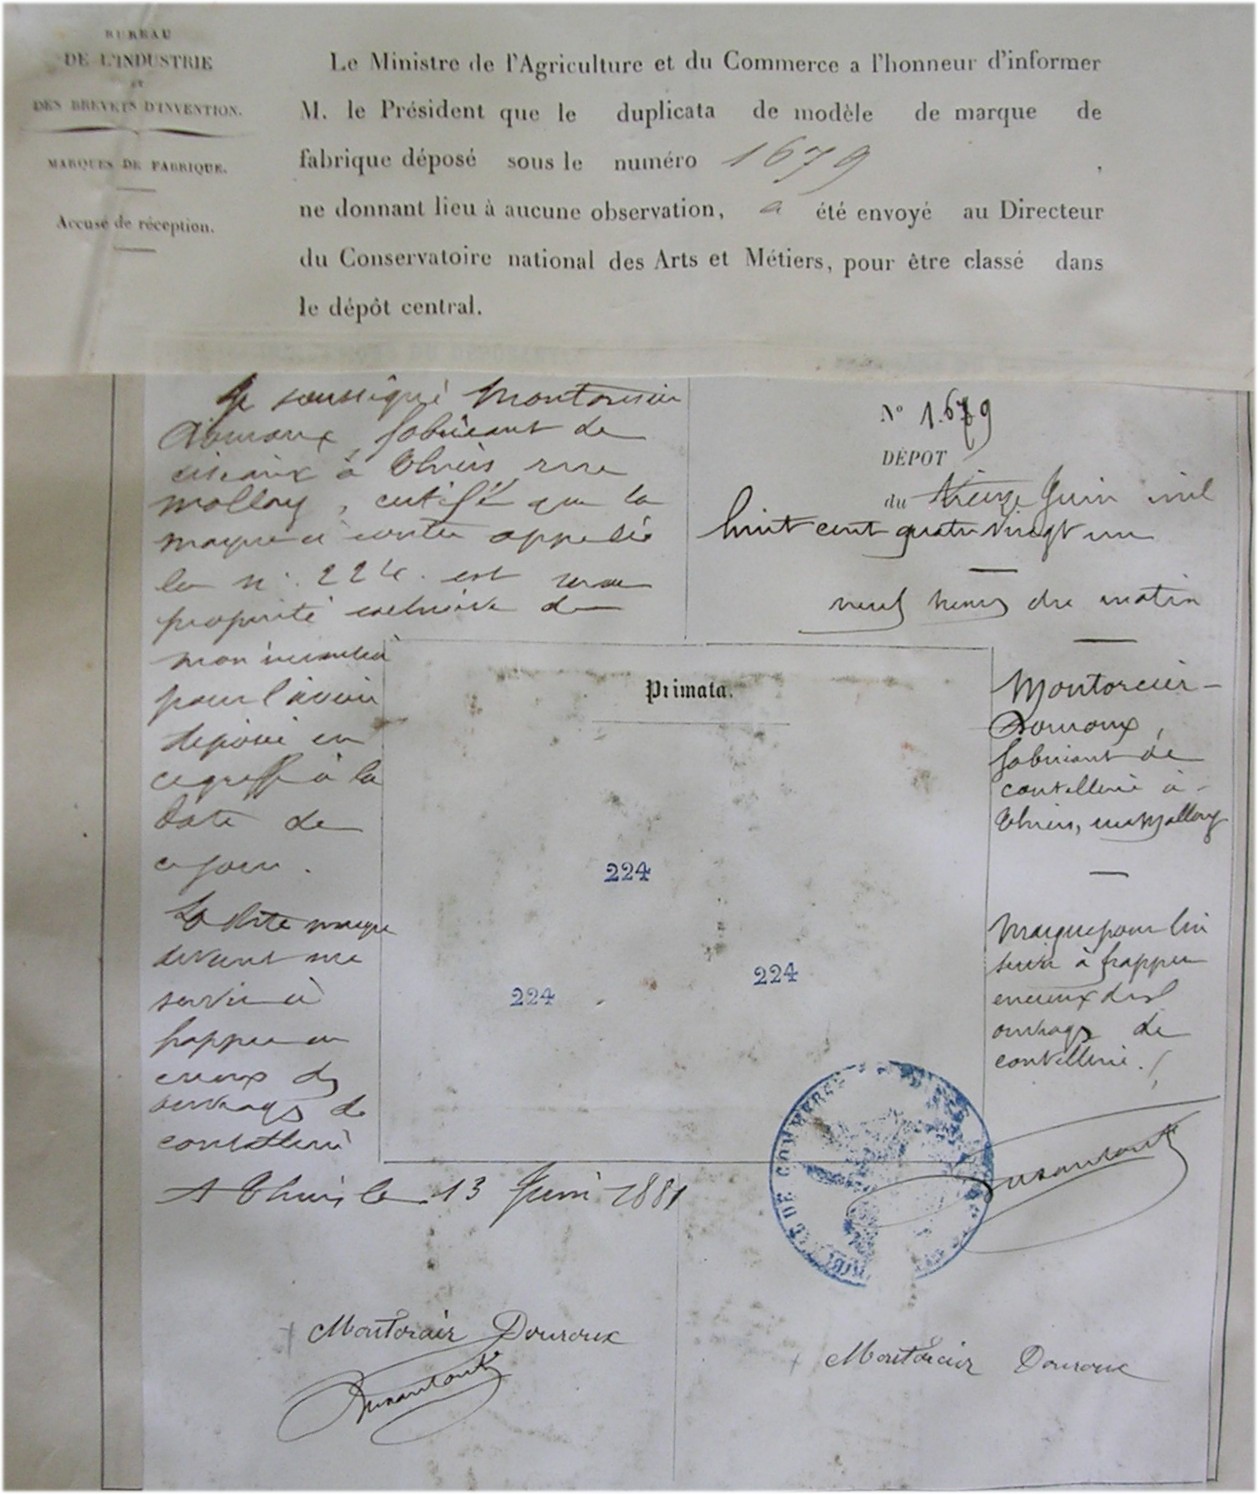 BUREAU
DE L'INDUSTRIE
ET
DES BREVETS D'INVENTION.
MARQUES DE FABRIQUE.
Accusé de réception.
Le Ministre de l'Agriculture et du Commerce a l'honneur d'informer
M. le Président que le duplicata de modèle de marque de
fabrique déposé sous le numéro 1679,
ne donnant lieu à aucune observation, a été envoyé au Directeur
du Conservatoire national des Arts et Métiers, pour être classé dans
le dépôt central.
Je soussigné Montorcier
Douroux, fabricant de
ciseaux à Thiers rue
Mallory, certifie que la
marque ci contre appelée
le n° 224 est une
propriété exclusive de
mon
pour l'avoir
déposé en
ce greffe à la
date de
ce jour.
La dite marque
devant me
servir à
frapper en
creux des
ouvrages de
coutellerie
A Thiers le 13 Juin 1881
Montorcier Douroux
N° 1.679
DÉPOT
du treize Juin mil
huit cent quatre vingt un
neuf heures du matin
Primata.
224
224
224
Montorcier-
Douroux,
fabricant de
coutellerie à
Thiers, rue Mallory
Marque pour lui
servir à frapper
en creux des
ouvrages de
coutellerie.
DE COMMERCE
Montorcier Douroux